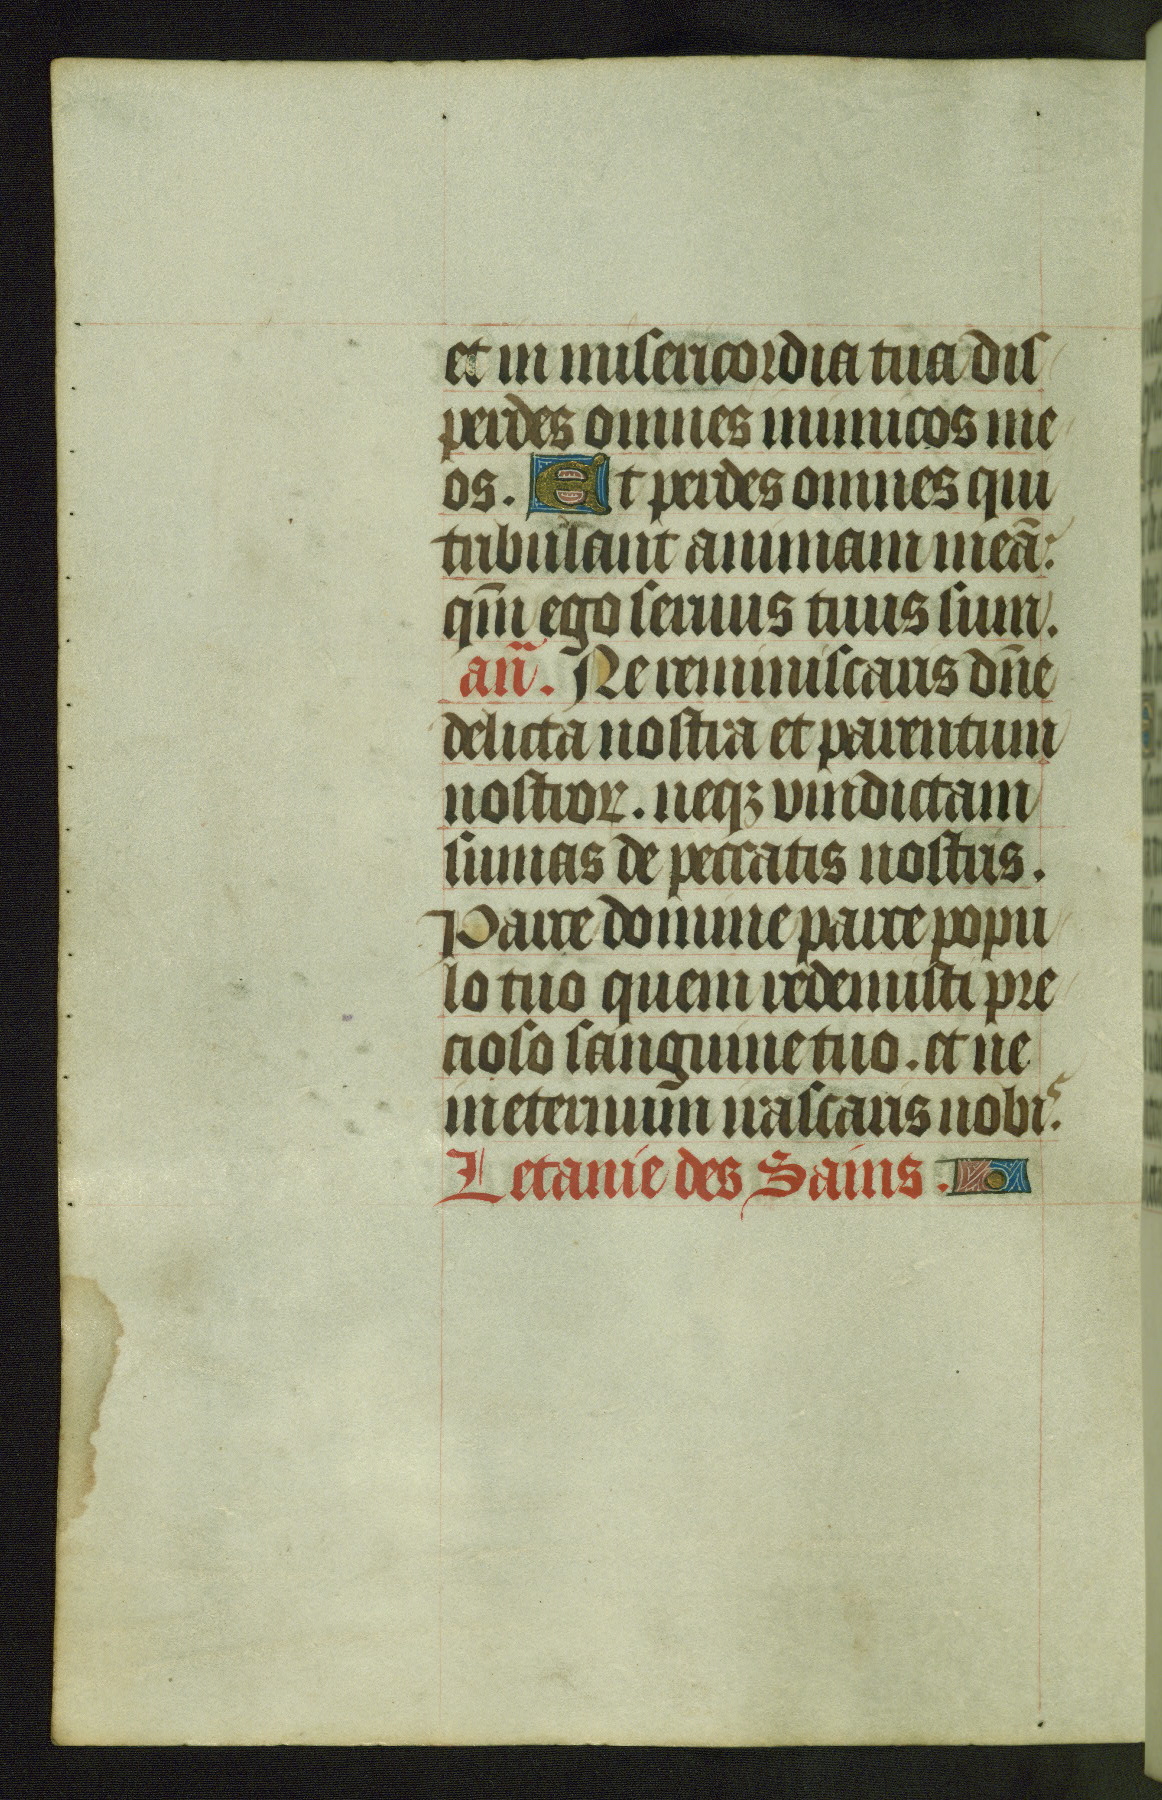 et in misericordia tua dis
perdes omnes inimicos me
os. Et perdes omnes qui
tribulant animam meā:
qm̄ ego seruus tuus sum.
an̄. Ne reminiscaris dn̄e
delicta nostra et parentum
nostroꝝ. neqꝫ vindictam
sumas de peccatis nostris.
Parce domine parce popu
lo tuo quem redemisti pre
cioso sanguine tuo. et ne
in eternum irascaris nobis.
Letanie des Sains.